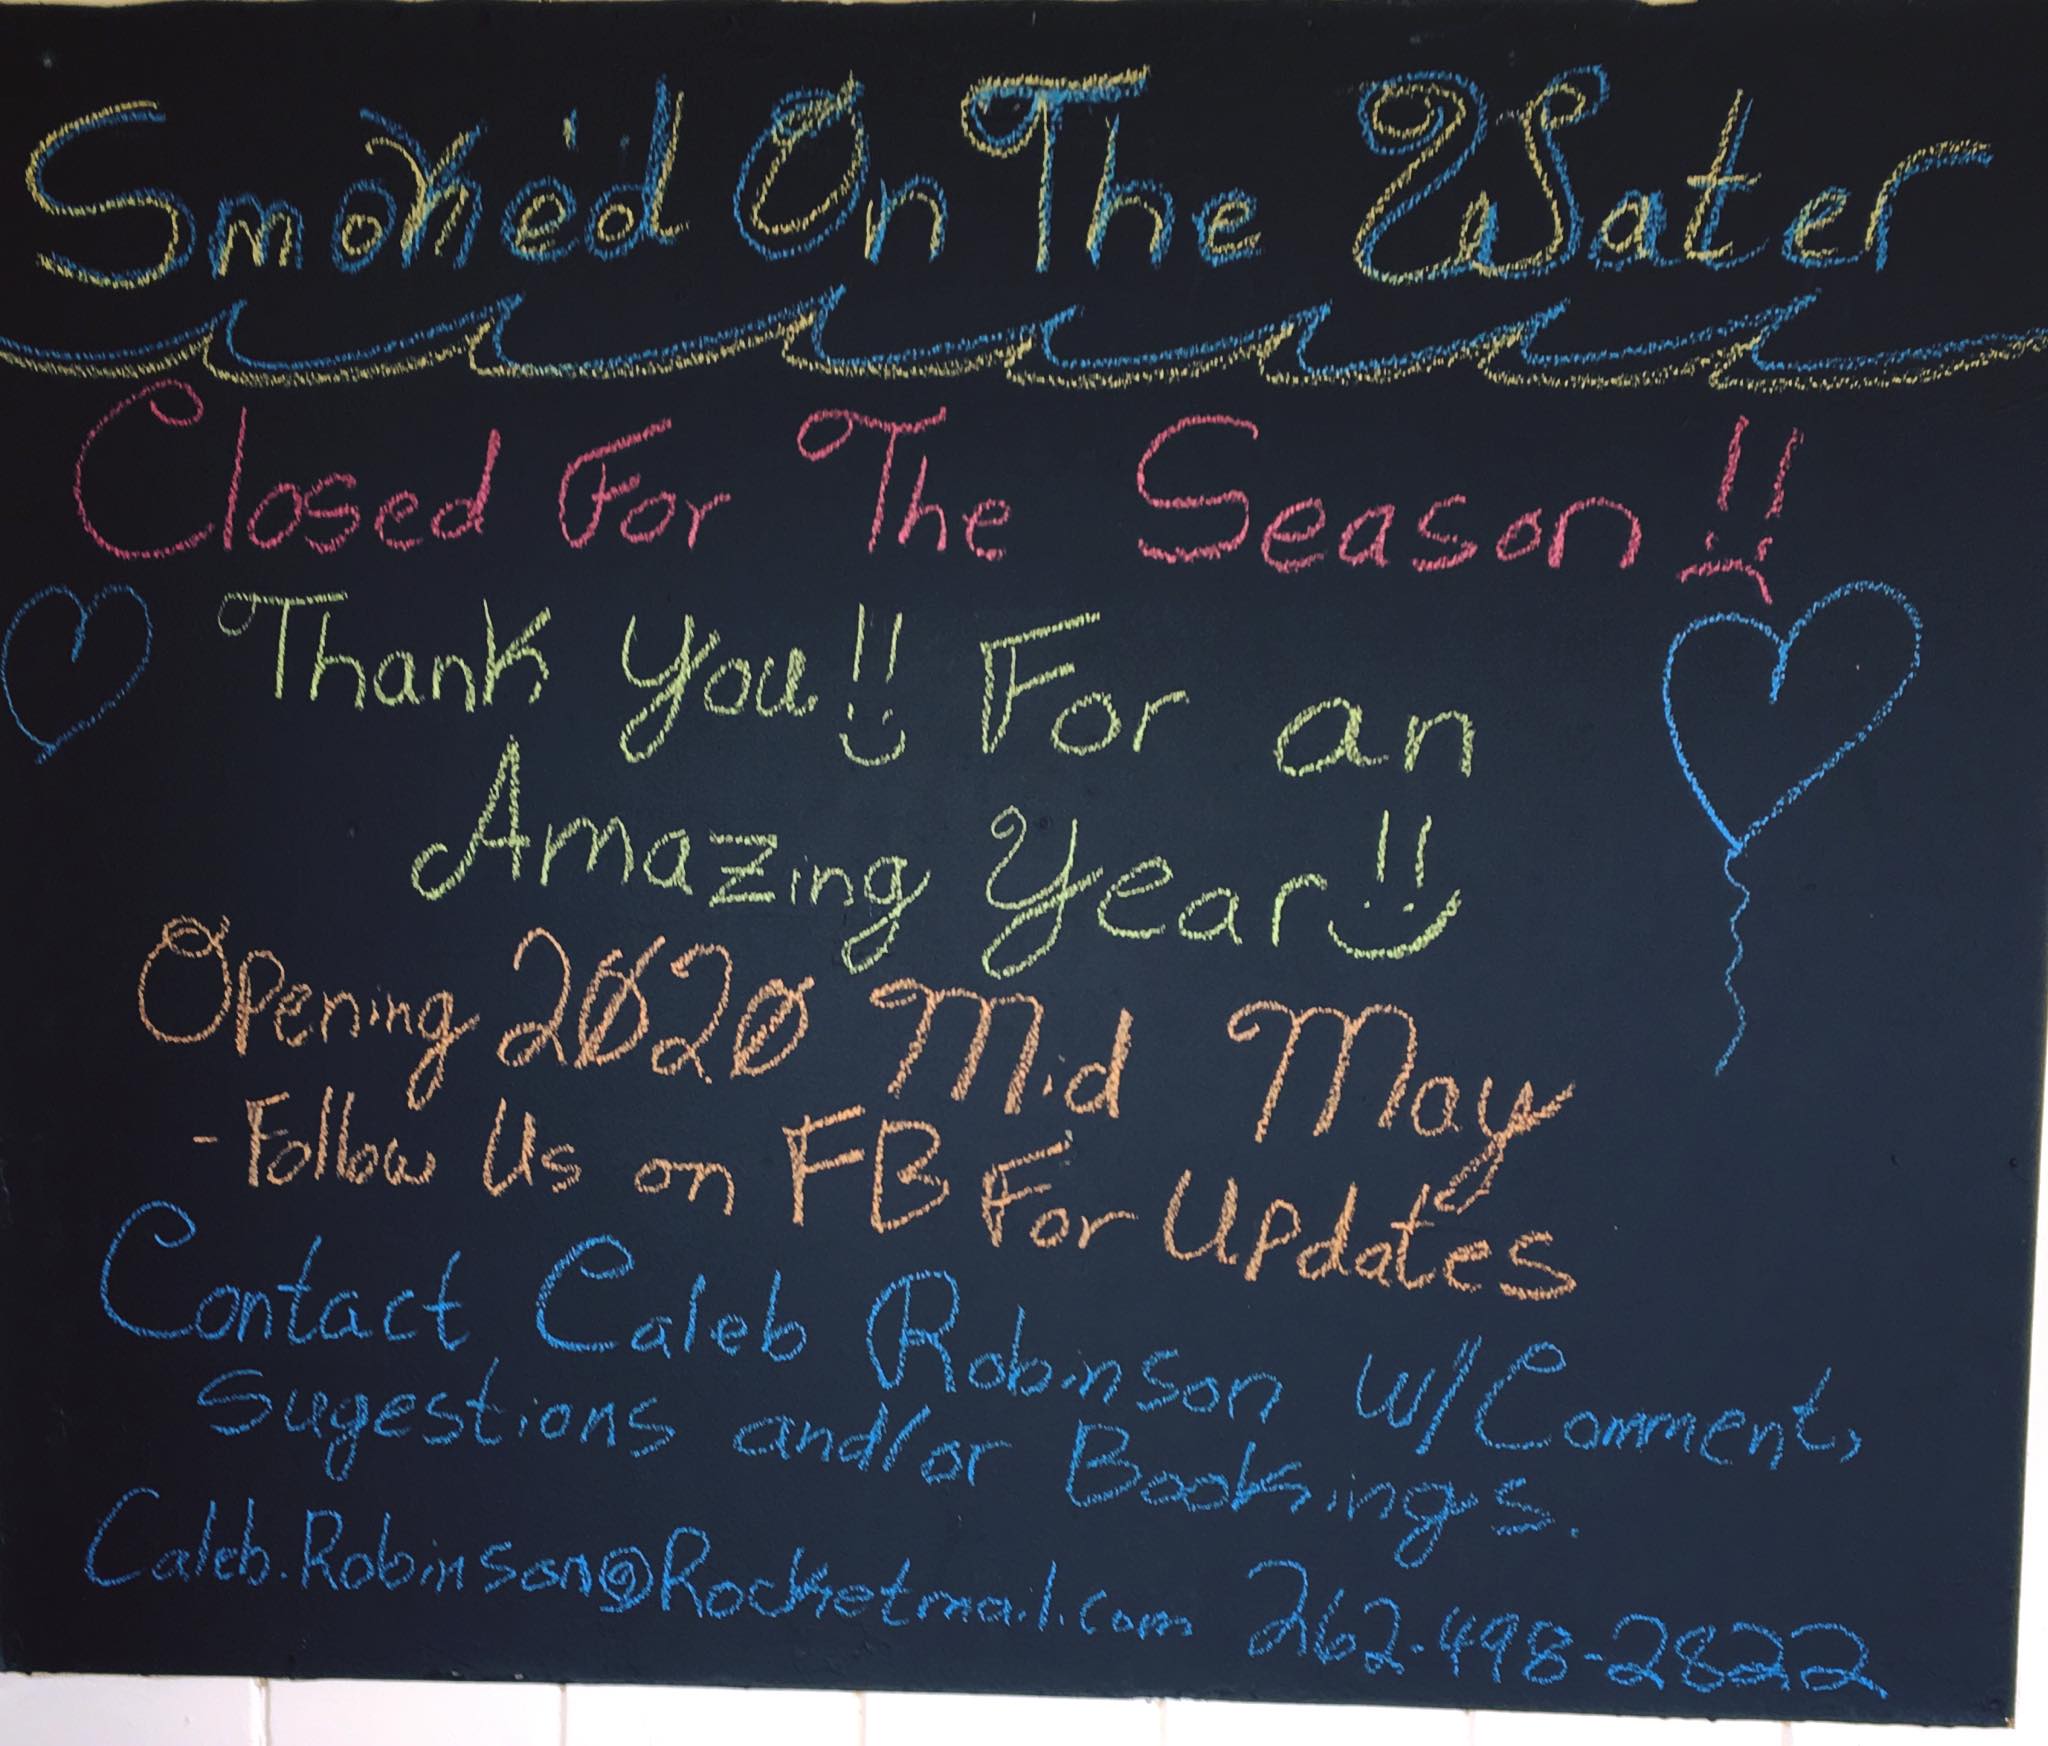 Smok'd On The Water
Closed For The Season!!
Thank You!! For an
Amazing Year!!
Opening 2020 Mid May
- Follow Us on FB For Updates
Contact Caleb Robinson w/Comment,
Sugestions and/or Bookings.
Caleb.Robinson@Rocketmail.com 262-498-2822